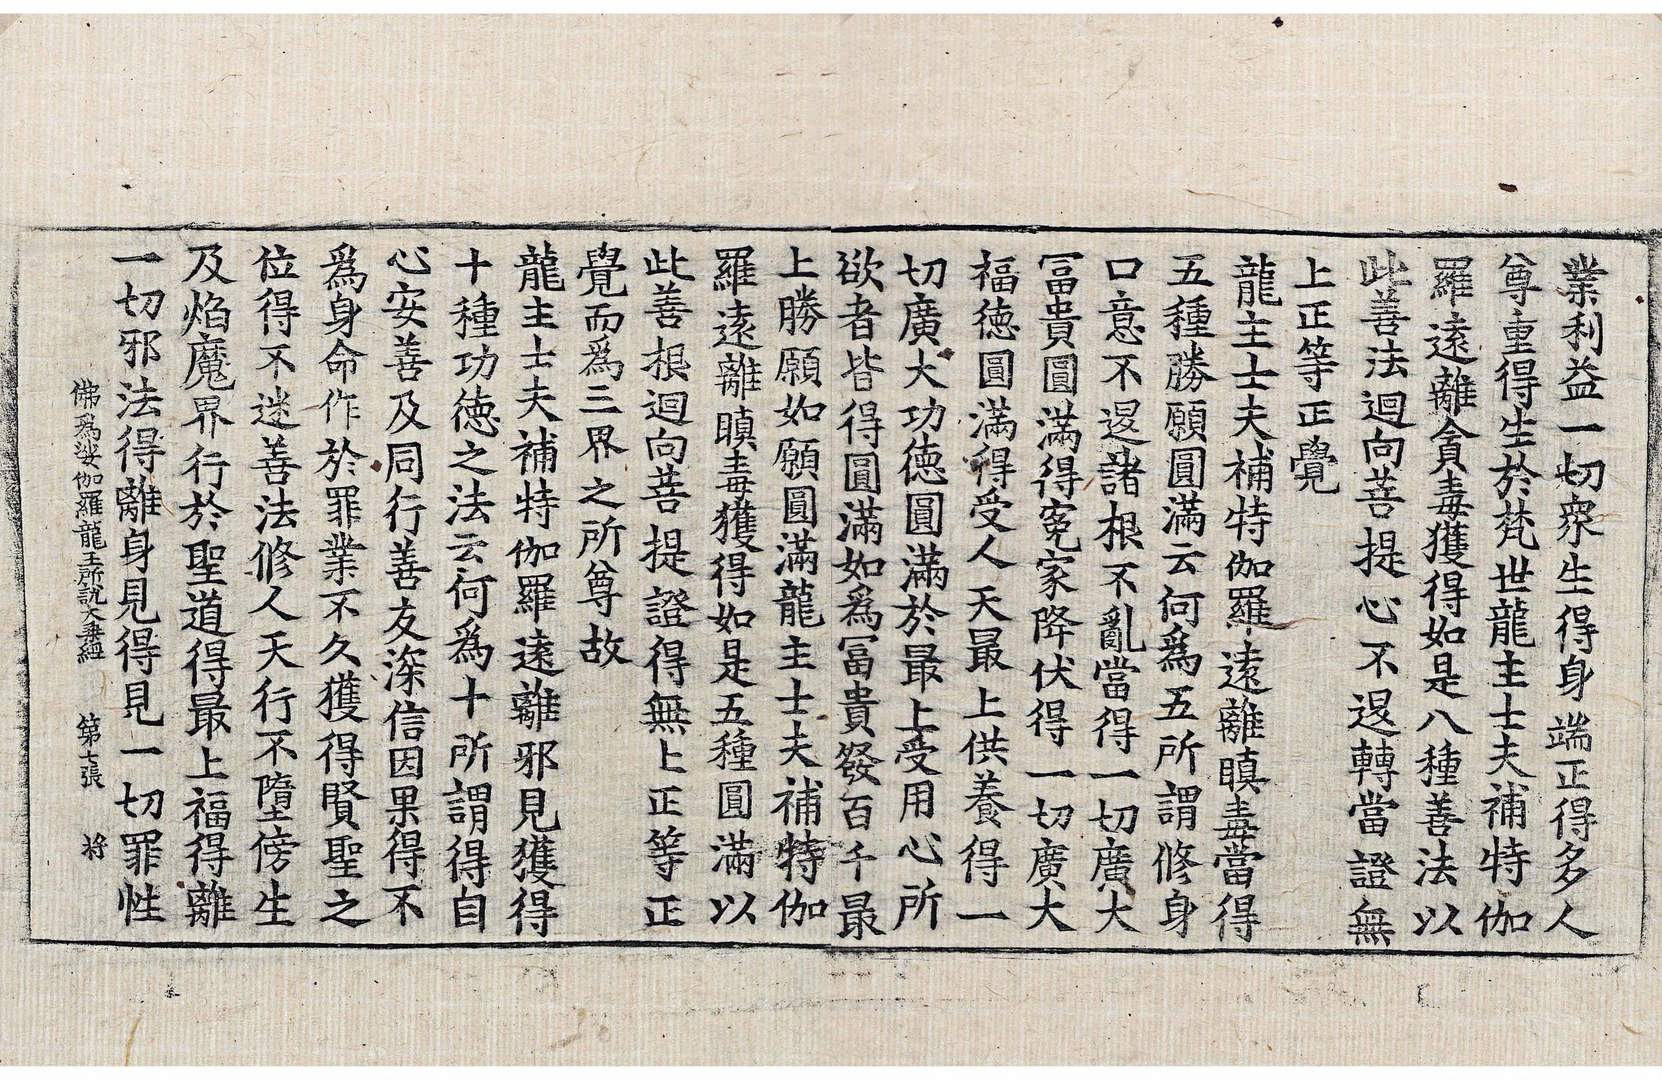 業利益一切眾生得身端正得多人
尊重得生於梵世龍主士夫補特伽
羅遠離貪毒獲得如是八種善法以
此善法迴向菩提心不退轉當證無
上正等正覺
龍主士夫補特伽羅遠離瞋毒當得
五種勝願圓滿云何為五所謂修身
口意不退諸根不亂當得一切廣大
冨貴圓滿得寃家降伏得一切廣大
福德圓滿得受人天最上供養得一
切廣大功德圓滿於最上受用心所
欲者皆得圓滿如為冨貴發百千最
上勝願如願圓滿龍主士夫補特伽
羅遠離瞋毒獲得如是五種圓滿以
此善根迴向菩提證得無上正等正
覺而為三界之所尊故
龍主士夫補特伽羅遠離邪見獲得
十種功德之法云何為十所謂得自
心安善及同行善友深信因果得不
為身命作於罪業不久獲得賢聖之
位得不迷善法修人天行不墮傍生
及焰魔界行於聖道得最上福得離
一切邪法得離身見得見一切罪性
佛為娑伽羅龍王所說大乘經 第七張 将